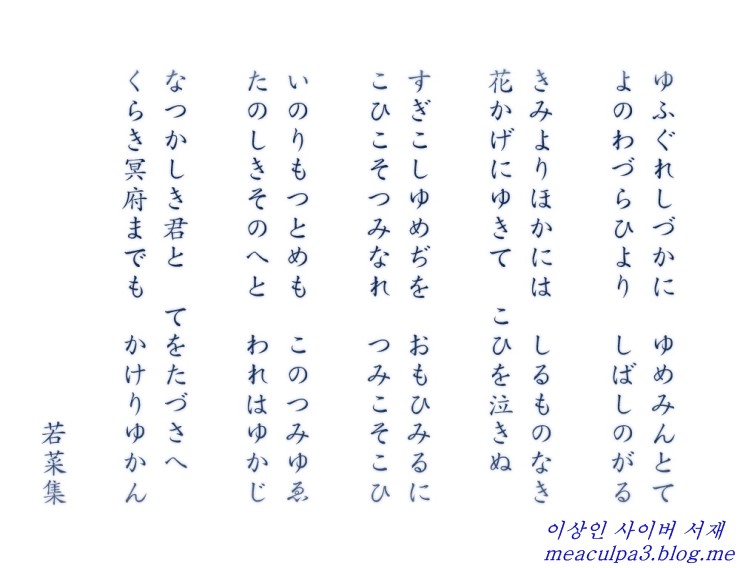 ゆふぐれしづかに　ゆめみんとて
よのわづらひより　しばしのがる
きみよりほかには　しるものなき
花かげにゆきて　こひを泣きぬ
すぎこしゆめぢを　おもひみるに
こひこそつみなれ　つみこそこひ
いのりもつとめも　このつみゆゑ
たのしきそのへと　われはゆかじ
なつかしき君と　てをたづさへ
くらき冥府までも　かけりゆかん
若菜集
이상인 사이버 서재
meaculpa3.blog.me